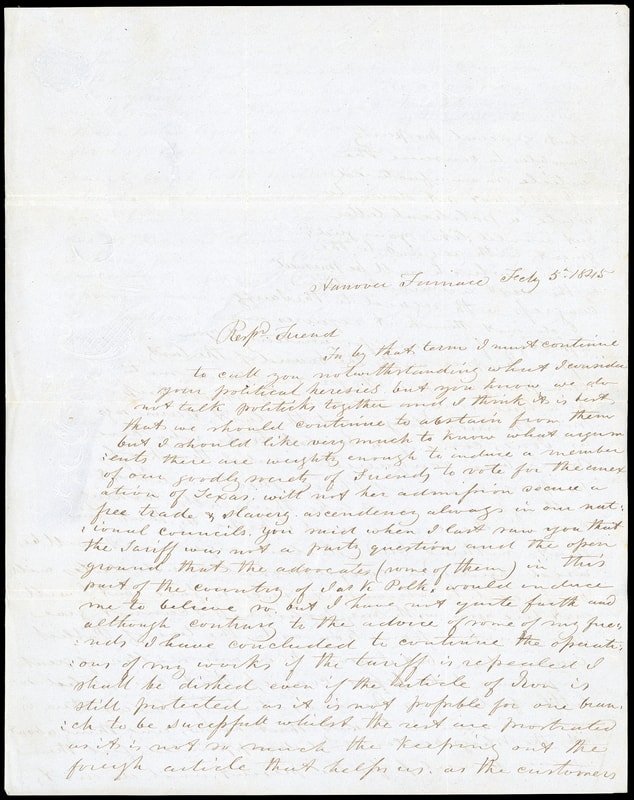 Hanover Furnace Feby 5th 1845
Resp. Friend
In by that term I must continue
to call you notwithstanding what I consider
your political heresies but you know we do
not talk politicks together and I think it is best
that we should continue to abstain from them
but I should like very much to know what argum
:ents there are weighty enough to induce a member
of our goodly society of Friends to vote for the annex
ation of Texas. will not her admission secure a
free trade & slavery ascendency always in our nat:
:ional councils. you said when I last saw you that
the Tariff was not a party question and the open
ground that the advocates (some of them) in this
part of the country of Jas K Polk, would induce
me to believe so, but I have not quite faith and
although contrary to the advice of some of my frie:
:nds I have concluded to continue the operati:
:ons of my works if the tariff is repealed I
shall be dished even if the article of Iron is
still protected as it is not possible for one bran:
:ch to be sucessfull whilst the rest are prostrated
as it is not so much the keeping out the
foreign article that helps us. as the customers